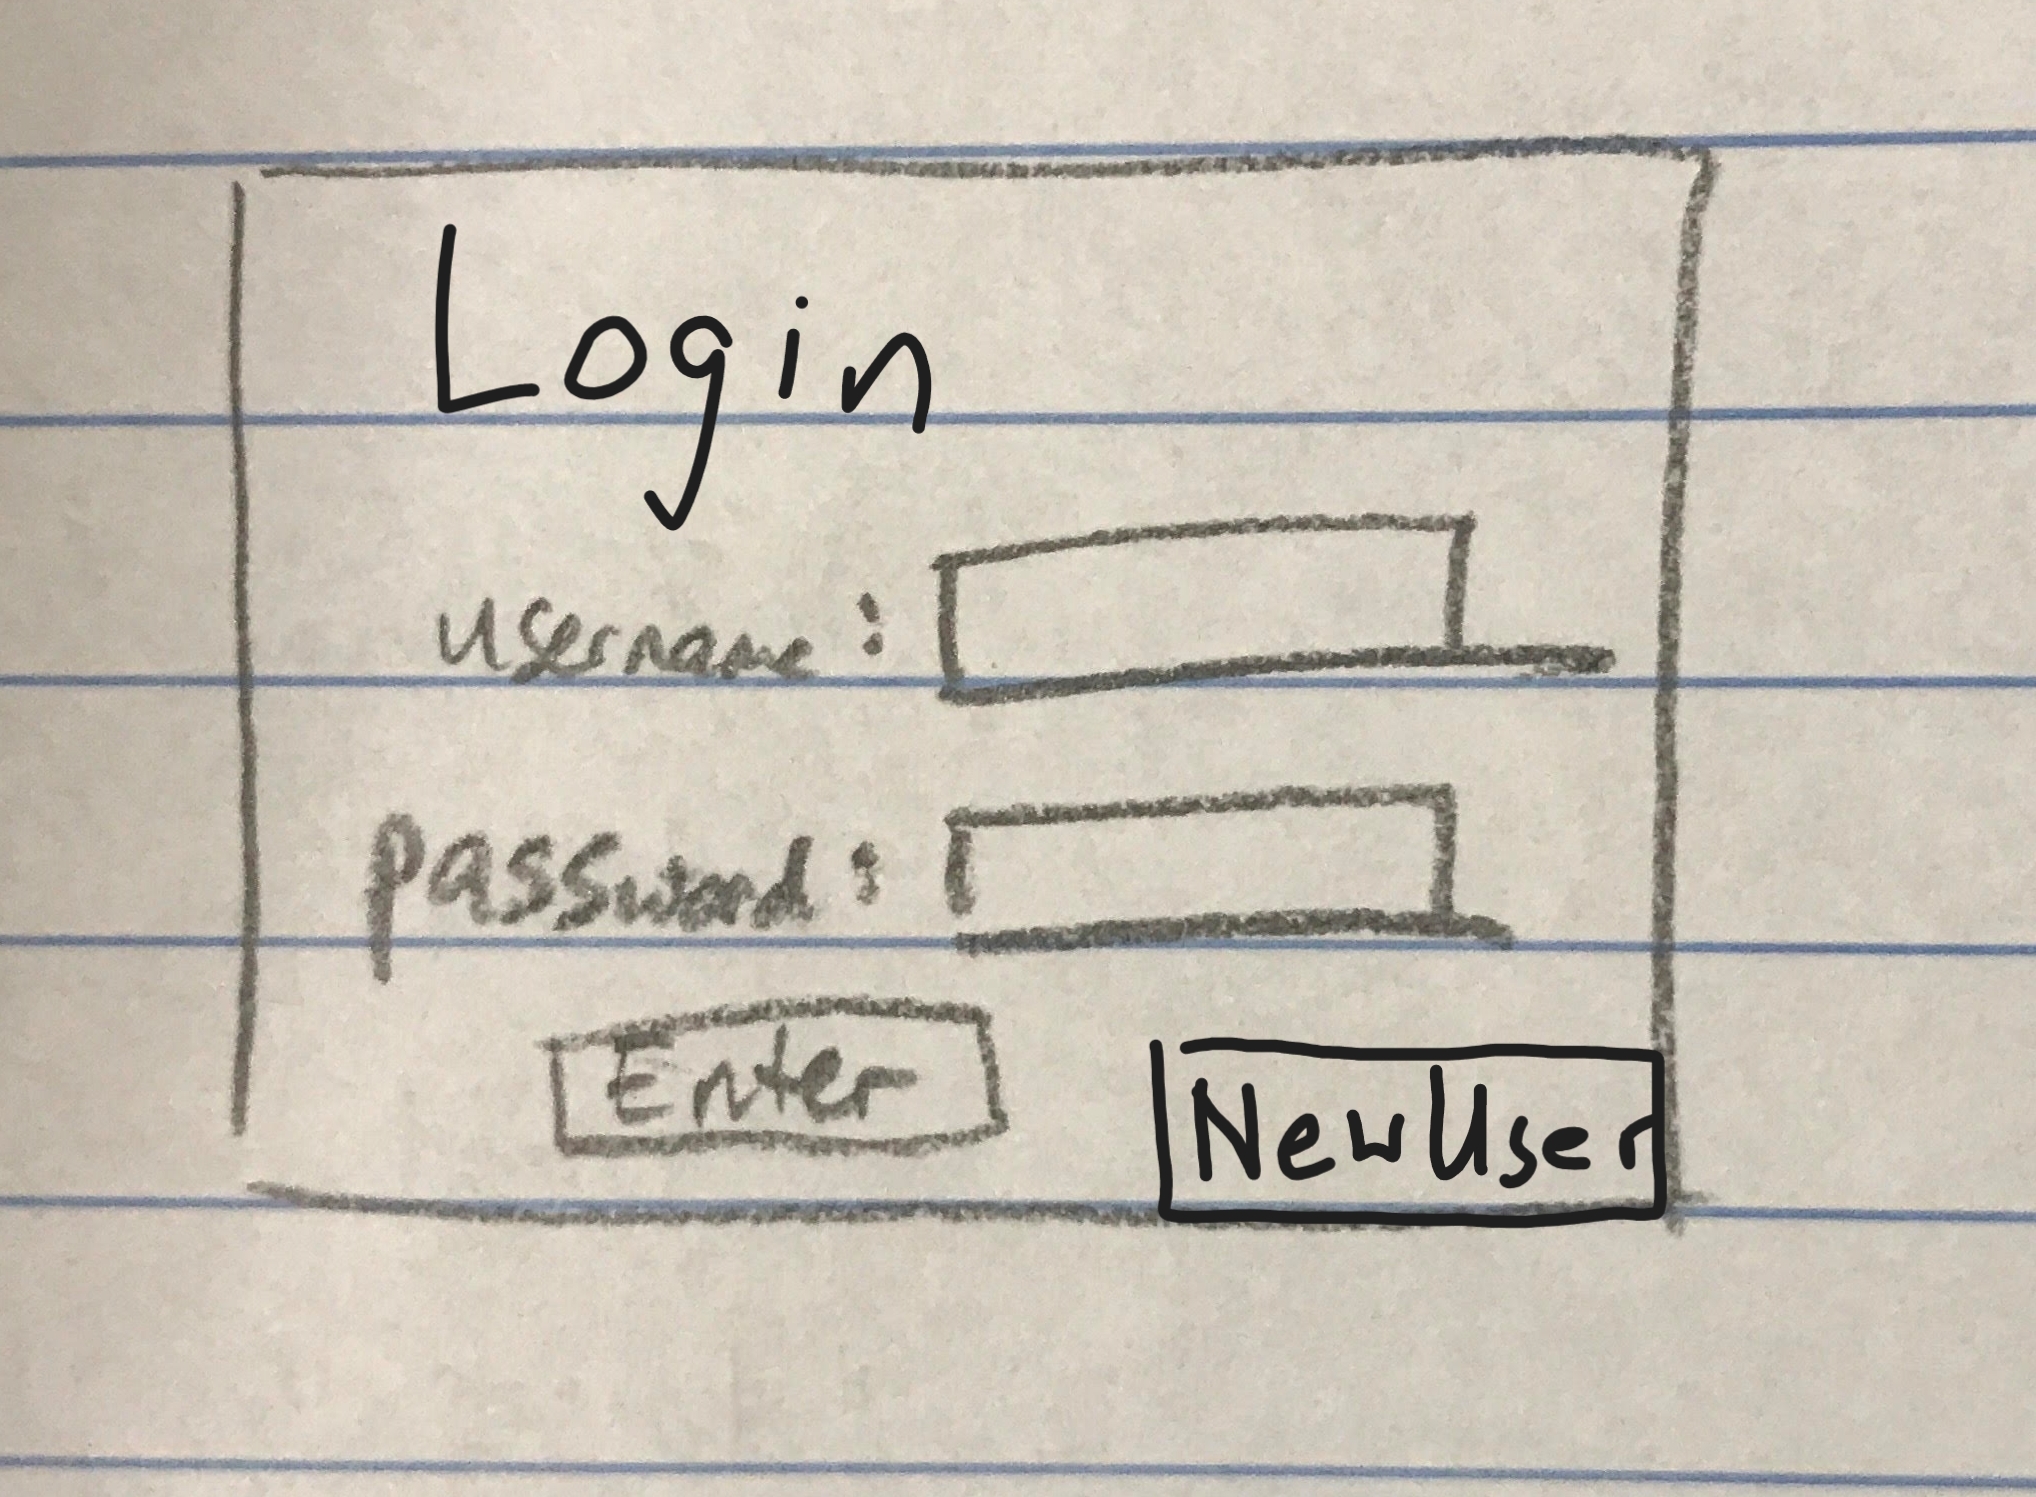 Login
username:
password:
Enter
New User